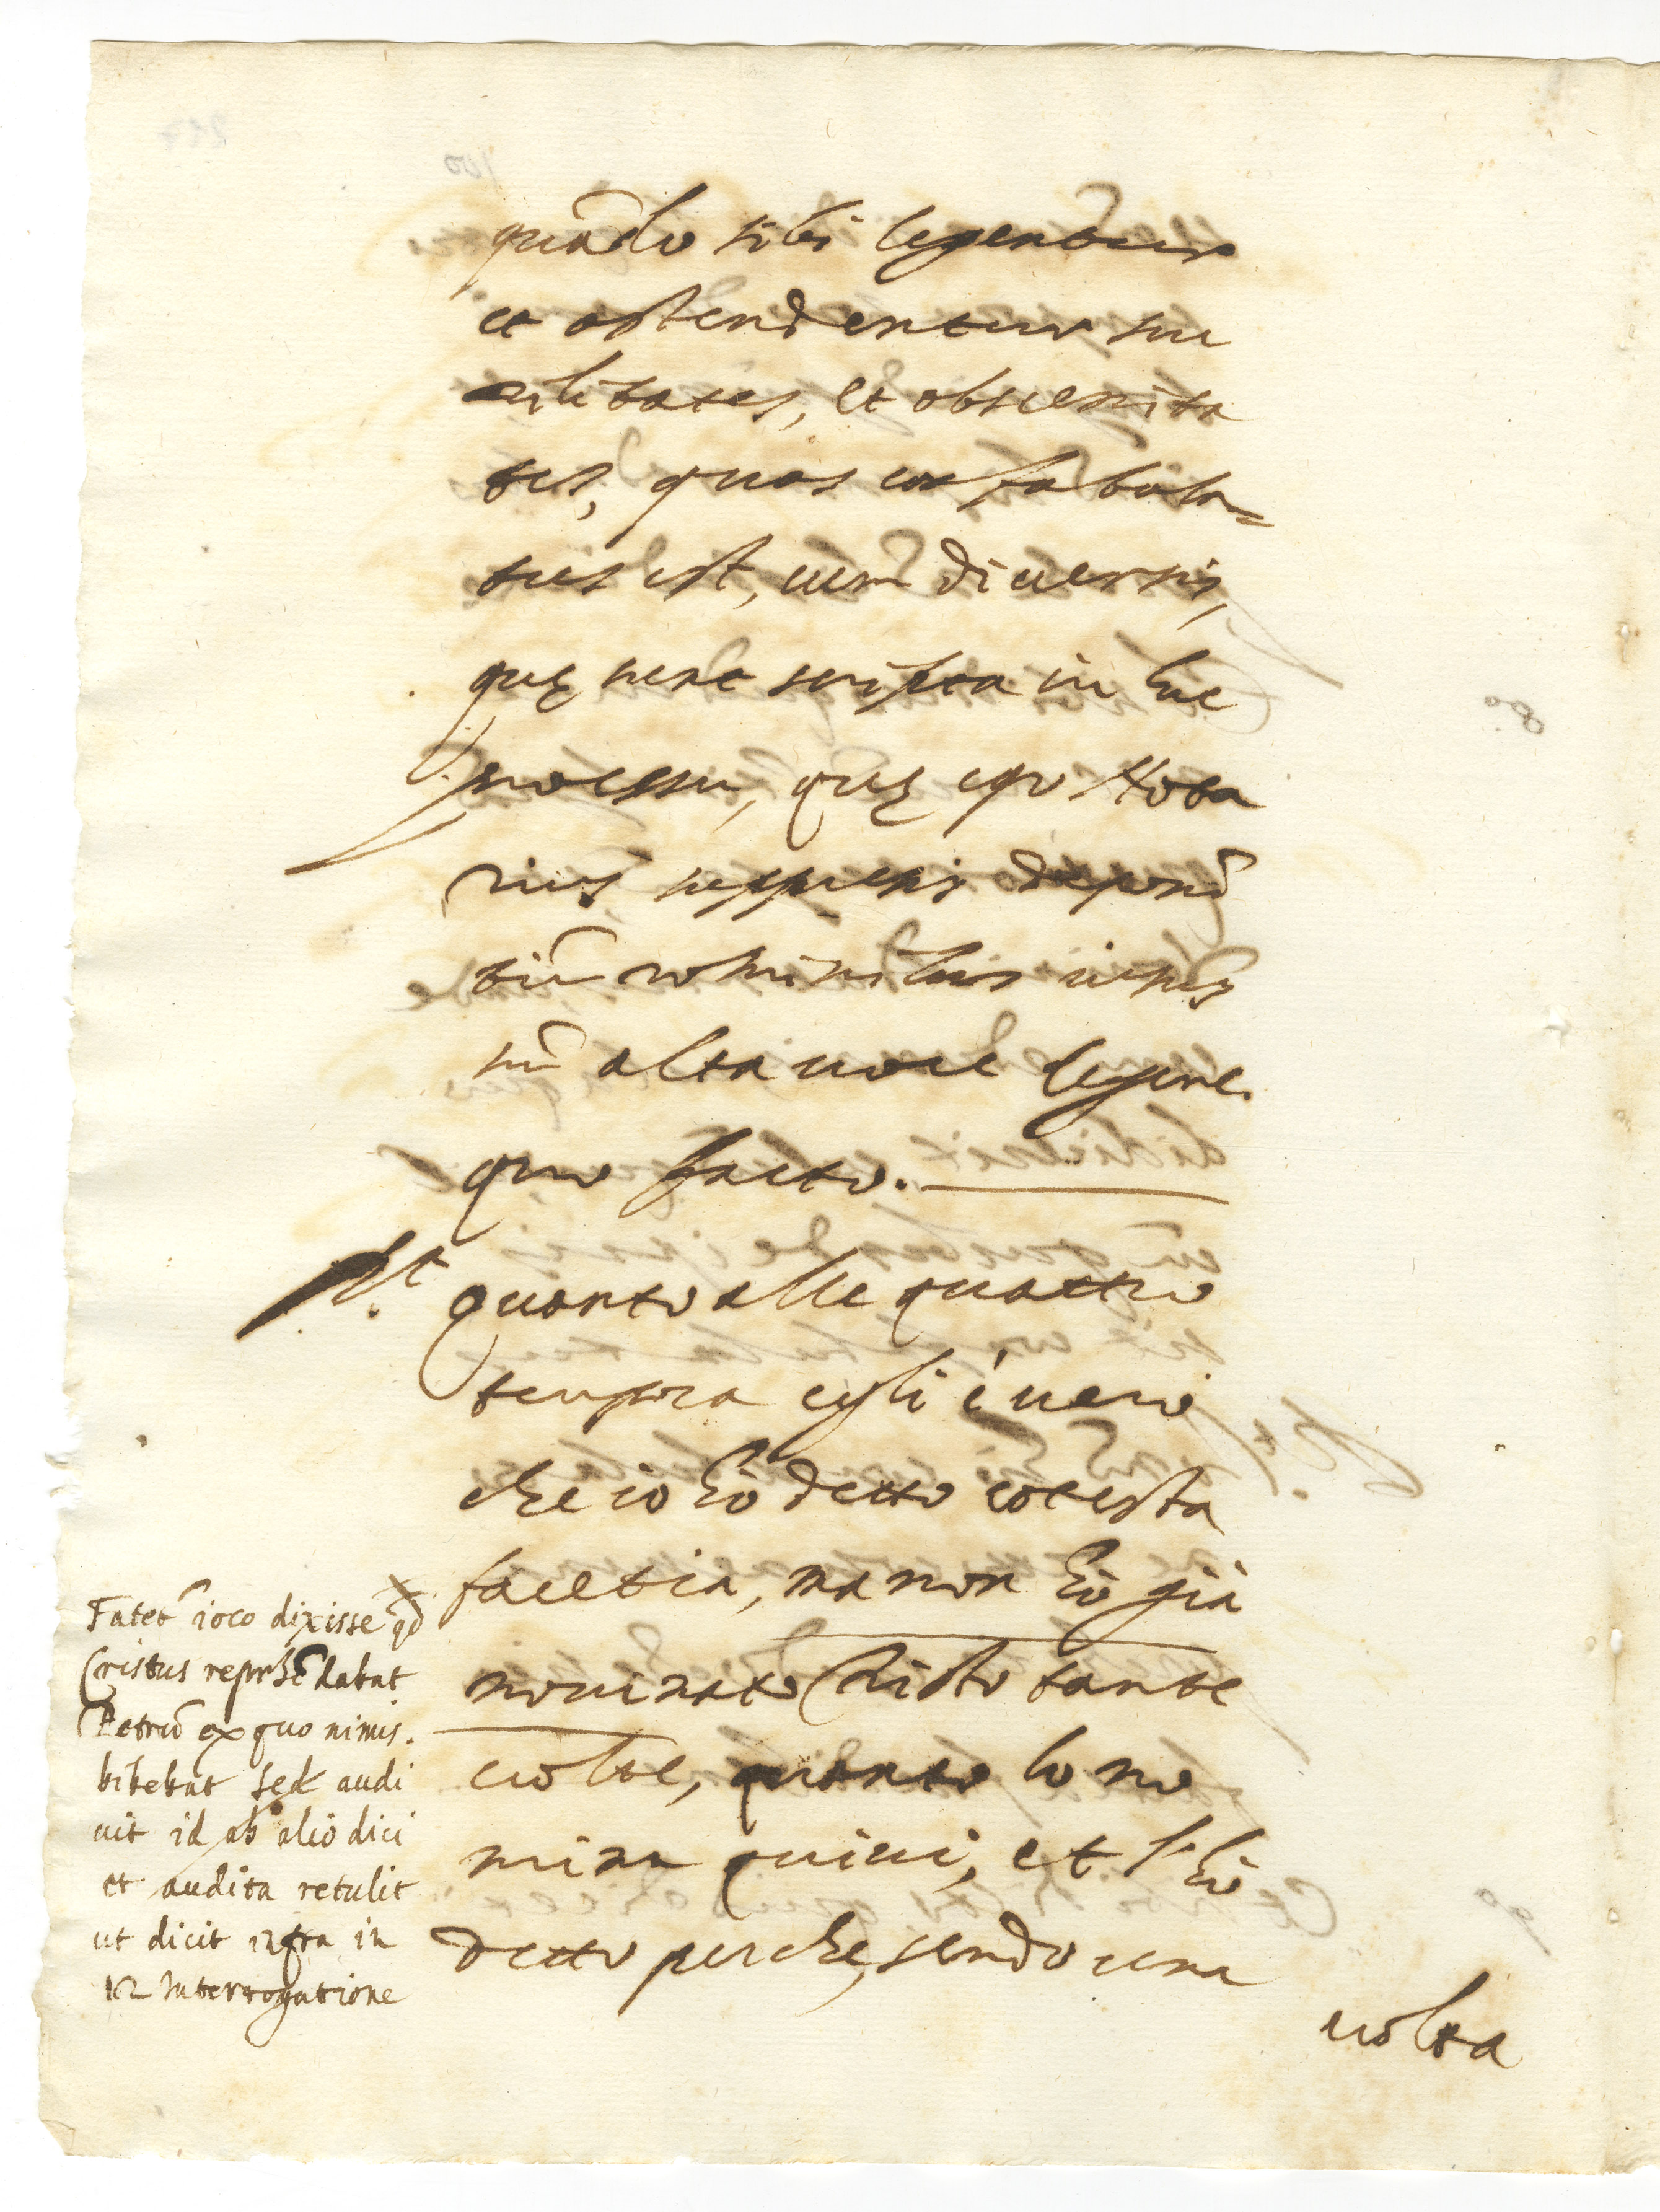 quādo sibi legentur
et ostendentur su
et obsceni ta
tes, quas confabula=
tus est, cum diuersis,
quę sunt scripta in hoc
processu, quę ego Nota
rius suppressis deponē
tiū nominibus
alta uoce legere.
quo facto.
Rt. quanto alle quattro
tempora egli è uero
che io hò detto cotesta
facetia, ma non hò già
nominato Christo tante
uolte, quanto lo no
mina quiui, et l'hò
detto perche, sendo una
uolta
Fatet̄ ioco dixisse qd̄
Cristus reprhēdabat
Petrū ex quo nimis
bibebat sed audi
uit id ab alio dici
et audita retulit
ut dicit infra in
12 Interrogatione